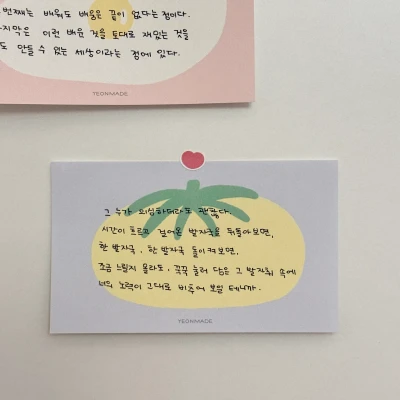 번째는 배워도 배움은 끝이 없다는 점이다.
지막은 이런 배운 것을 토대로 재밌는 것들
도 만들 수 있는 세상이라는 점에 있다.
YEONMADE
그 누가 의심하더라도 괜찮다.
시간이 흐르고 걸어온 발자국을 뒤돌아보면,
한 발자국, 한 발자국 돌이켜보면,
조금 느릴지 몰라도, 꾹꾹 눌러 담은 그 발자취 속에
너의 노력이 그대로 비추어 보일 테니까.
YEONMADE